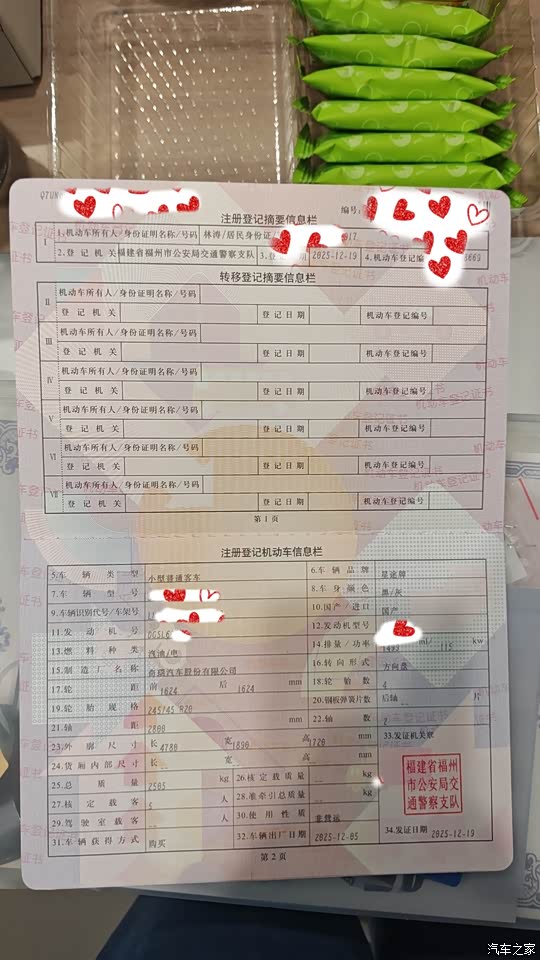 QTUN
编号:
注册登记摘要信息栏
I 1.机动车所有人/身份证明名称/号码 林涛/居民身份证 17
2.登记机关 福建省福州市公安局交通警察支队 3.登 2025-12-19 4.机动车登记编 8669
转移登记摘要信息栏
II 机动车所有人/身份证明名称/号码
登记机关 登记日期 机动车登记编号
III 机动车所有人/身份证明名称/号码
登记机关 登记日期 机动车登记编号
IV 机动车所有人/身份证明名称/号码
登记机关 登记日期 机动车登记编号
V 机动车所有人/身份证明名称/号码
登记机关 登记日期 机动车登记编号
VI 机动车所有人/身份证明名称/号码
登记机关 登记日期 机动车登记编号
VII 机动车所有人/身份证明名称/号码
登记机关 登记日期 机动车登记编号
第1页
注册登记机动车信息栏
5.车辆类型 小型普通客车 6.车辆品牌 星途牌
7.车辆型号 8.车身颜色 黑/灰
9.车辆识别代号/车架号 10.国产/进口 国产
11.发动机号 12.发动机型号
13.燃料种类 汽油/电 14.排量/功率 ml/ 115 kw
15.制造厂名称 奇瑞汽车股份有限公司 16.转向形式 方向盘
17.轮距 前 1624 后 1624 mm 18.轮胎数 4
19.轮胎规格 245/45 R20 20.钢板弹簧片数 后轴 -- 片
21.轴距 2800 mm 22.轴数 2
23.外廓尺寸 长 4780 宽 1890 高 1720 mm 33.发证机关章
24.货厢内部尺寸 长 -- 宽 -- 高 -- mm
25.总质量 2505 kg 26.核定载质量 -- kg
27.核定载客 5 人 28.准牵引总质量 -- kg
29.驾驶室载客 -- 人 30.使用性质 非营运
31.车辆获得方式 购买 32.车辆出厂日期 2025-12-05 34.发证日期 2025-12-19
福建省福州
市公安局交
通警察支队
第2页
汽车之家